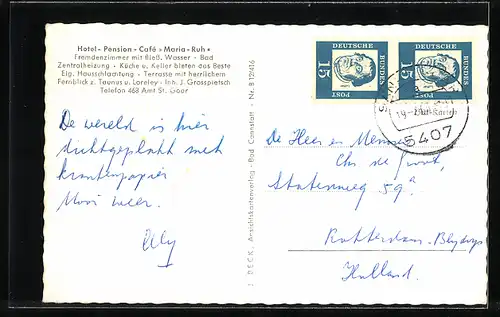 Hotel-Pension-Café »Maria-Ruh«
Fremdenzimmer mit fließ. Wasser - Bad
Zentralheizung - Küche u. Keller bieten das Beste
Eig. Hausschlachtung - Terrasse mit herrlichem
Fernblick z. Taunus u. Loreley - Inh. J. Grospietsch
Telefon 468 Amt St. Goar
De wereld is hier
dichtgeplakt met
krantenpapier
Mooi weer.
Elly
J. BECK, Ansichtskartenverlag - Bad Cannstatt - Nr. B 12646
DEUTSCHE
BUNDES
POST
15
DEUTSCHE
BUNDES
POST
15
5407
De Heer en Mevrouw
Chr de Groot,
Statenweg 59a
Rotterdam. Blijdorp
Holland.